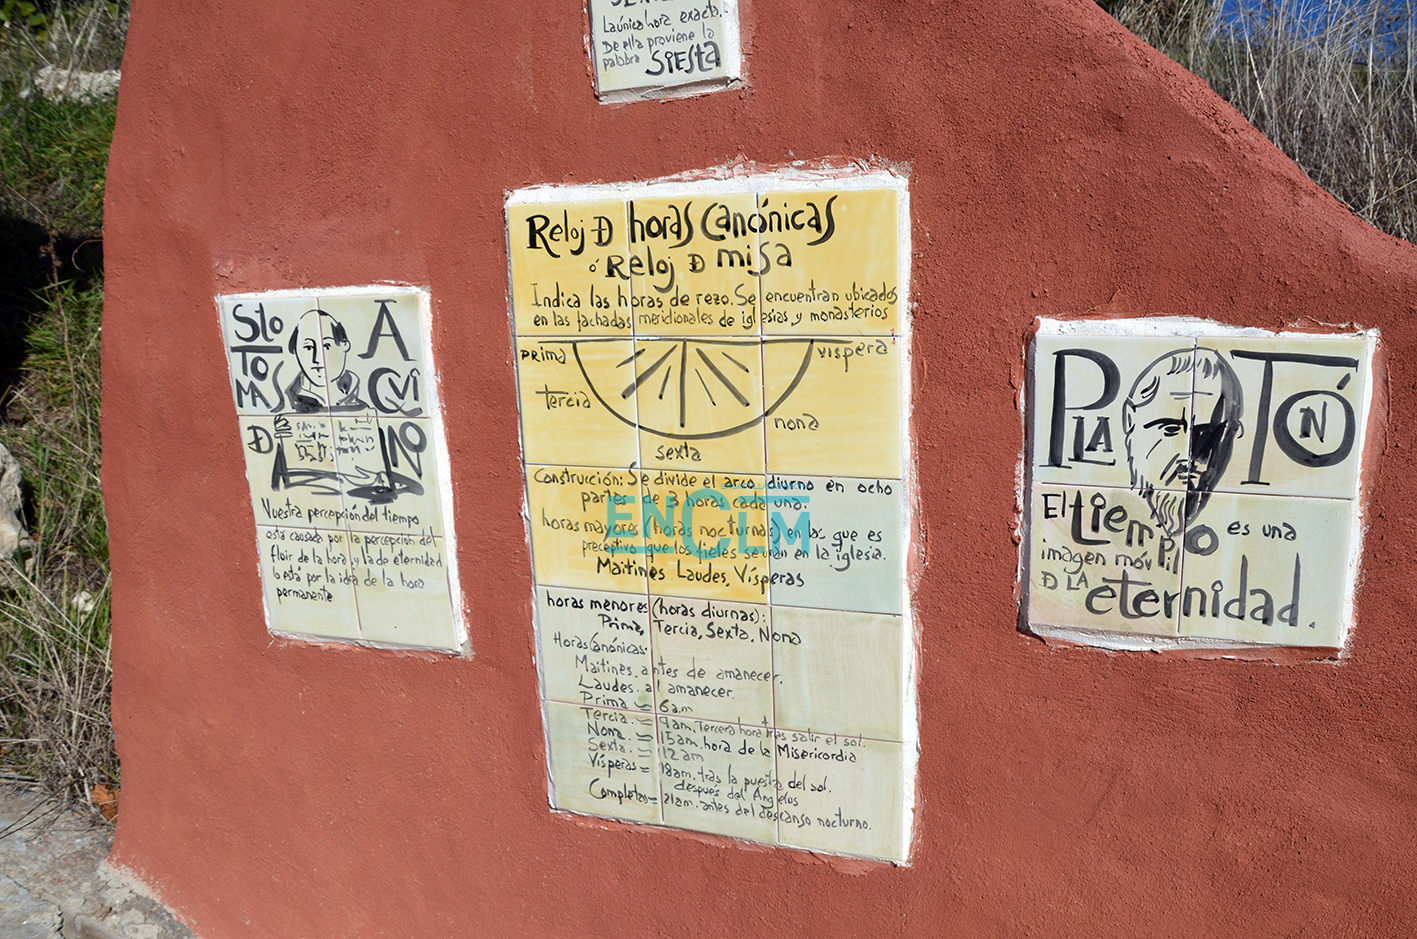 La única hora exacta.
De ella proviene la
palabra SiESta
Sto
TOMAS
D
AQUINO
Nuestra percepción del tiempo
está causada por la percepción del
fluir de la hora y la de eternidad
lo está por la idea de la hora
permanente
Reloj D horas Canónicas
ó Reloj D misa
Indica las horas de rezo. Se encuentran ubicados
en las fachadas meridionales de iglesias y monasterios
PRIMA
vispera
tercia
nona
sexta
Construcción: Se divide el arco diurno en ocho
partes de 3 horas cada una.
horas mayores (horas nocturnas) en las que es
preceptivo que los fieles se unan en la iglesia.
Maitines Laudes, Vísperas
horas menores (horas diurnas):
Prima, Tercia, Sexta, Nona
Horas Canónicas:
Maitines. antes de amanecer.
Laudes. al amanecer.
Prima ≈ 6 a.m
Tercia. ≈ 9 am. Tercera hora tras salir el sol.
Nona. ≈ 15 am. hora de la Misericordia
Sexta. ≈ 12 am
Vísperas ≈ 18 am. tras la puesta del sol.
después del Angelus
Completas ≈ 21 am. antes del descanso nocturno.
PLATÓN
El tiempo es una
imagen móvil
D LA eternidad.
ENCLM